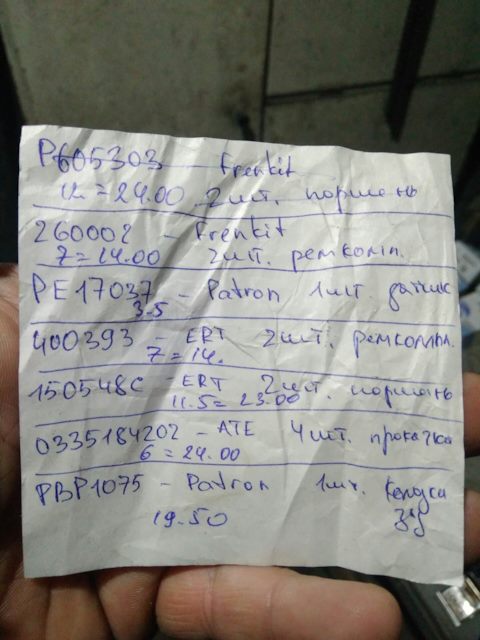 P605303 - Frenkit
12 = 24.00 2шт. поршень
260002 - Frenkit
7 = 14.00 2шт. ремкомп.
PE17037 - Patron 1шт. датчик
3.5
400393 - ERT 2шт. ремкомпл.
7 = 14.
150548C - ERT 2шт. поршень
11.5 = 23.00
0335184202 - ATE 4шт. прокачка
6 = 24.00
PBP1075 - Patron 1шт.
19.50